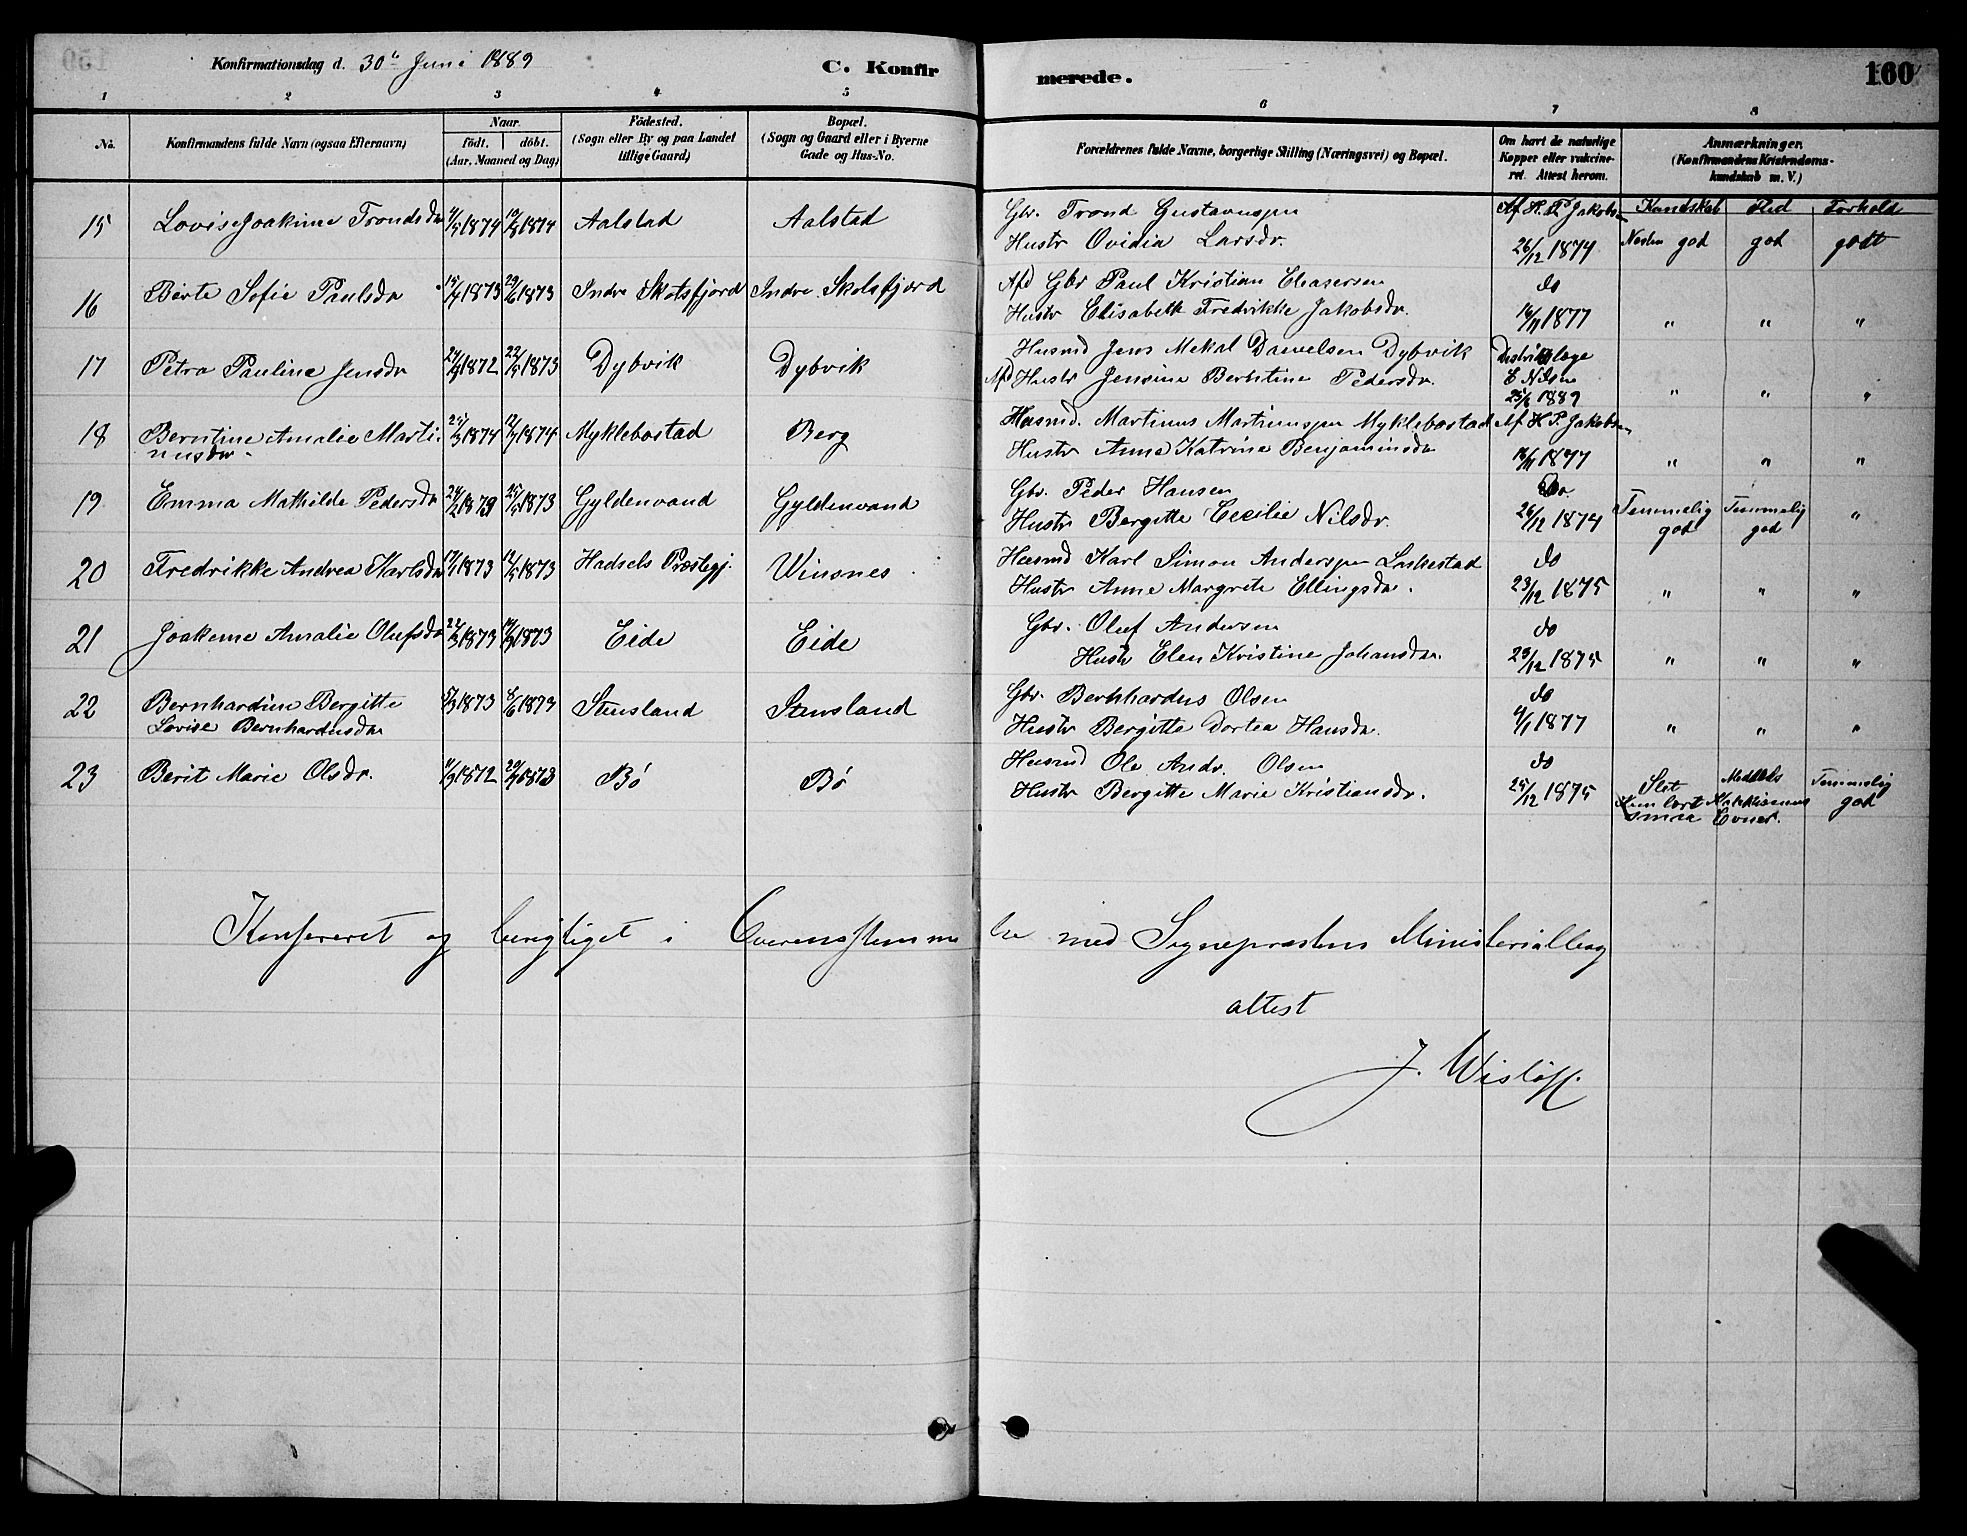 Konfirmationsdag d. 30te Juni 1889
C. Konfirmerede.
160
1 2 3 4 5 6 7 8
No.
Konfirmandens fulde Navn (ogsaa Efternavn)
Naar
födt. döbt.
(Aar, Maaned og Dag)
Födested.
(Sogn eller By og paa Landet
tillige Gaard)
Bopæl.
(Sogn og Gaard eller i Byerne
Gade og Hus-No.
Forældrenes fulde Navne, borgerlige Stilling (Næringsvei) og Bopæl.
Om havt de naturlige
Kopper eller vakcine-
ret. Attest herom.
Anmærkninger.
(Konfirmandens Kristendoms-
kundskab m. V.)
Kundskab Flid Forhold
15 Lovise Joakime Trondsdr 1874 1874 Aalstad Aalstad Gbr. Trond Gustavussen Af H. P. Jakobsen
Hustr Ovidia Larsdr. 26/12 1874 Næsten god god godt
16 Berte Sofie Paulsdr 1873 1873 Indre Skotsfjord Indre Skotsfjord Afd Gbr Paul Kristian Eleasersen do
Hustr Elisabeth Fredrikke Jakobsdr. 16/11 1877 " " "
17 Petra Pauline Jensdr 1872 1873 Dybvik Dybvik Husmd Jens Mekal Danielsen Dybvik Distriktslæge
Afd Hustr Jensine Berntine Pedersdr. E Nilsen
25/6 1889 " " "
18 Berntine Amalie Marti- 1874 1874 Myklebostad Berg Husmd. Martinus Martinussen Myklebostad Af H P. Jakobsen
nusdr Hustr Anna Katrine Benjaminsdr 16/11 1877 " " "
19 Emma Mathilde Pedersdr 1873 1873 Gyldenvand Gyldenvand Gbr. Peder Hansen Do
Hustr Bergitte Cecilie Nilsdr. 26/12 1874 Temmelig god Temmelig god "
20 Fredrikke Andrea Karlsdr 1873 1873 Hadsels Præstegj. Winsnes Husmd Karl Simon Anderssen Laskestad do
Hustr Anne Margrete Ellingsdr. 23/12 1875 " " "
21 Joakime Amalie Olufsdr 1873 1873 Eide Eide Gbr. Oluf Andersen do
Hustr Elen Kristine Johansdr. 23/12 1875 " " "
22 Bernhardine Bergitte 1873 8/6 1873 Stensland Stensland Gbr. Bernhardus Olsen do
Lovise Bernhardusdr Hustr Bergitte Dortea Hansdr. 1877 " " "
23 Berit Marie Olsdr. 1872 1873 Bö Bö Husmd Ole Andr. Olsen do
Hustr Bergitte Marie Kristiansdr. 25/12 1875 Slet Middels Temmelig
Kun lært Katekismus god
smaa Evner.
Konfereret og berigtiget i Overensstemmelse med Sognepræstens Ministerialbog
attest
J. Wisløff.